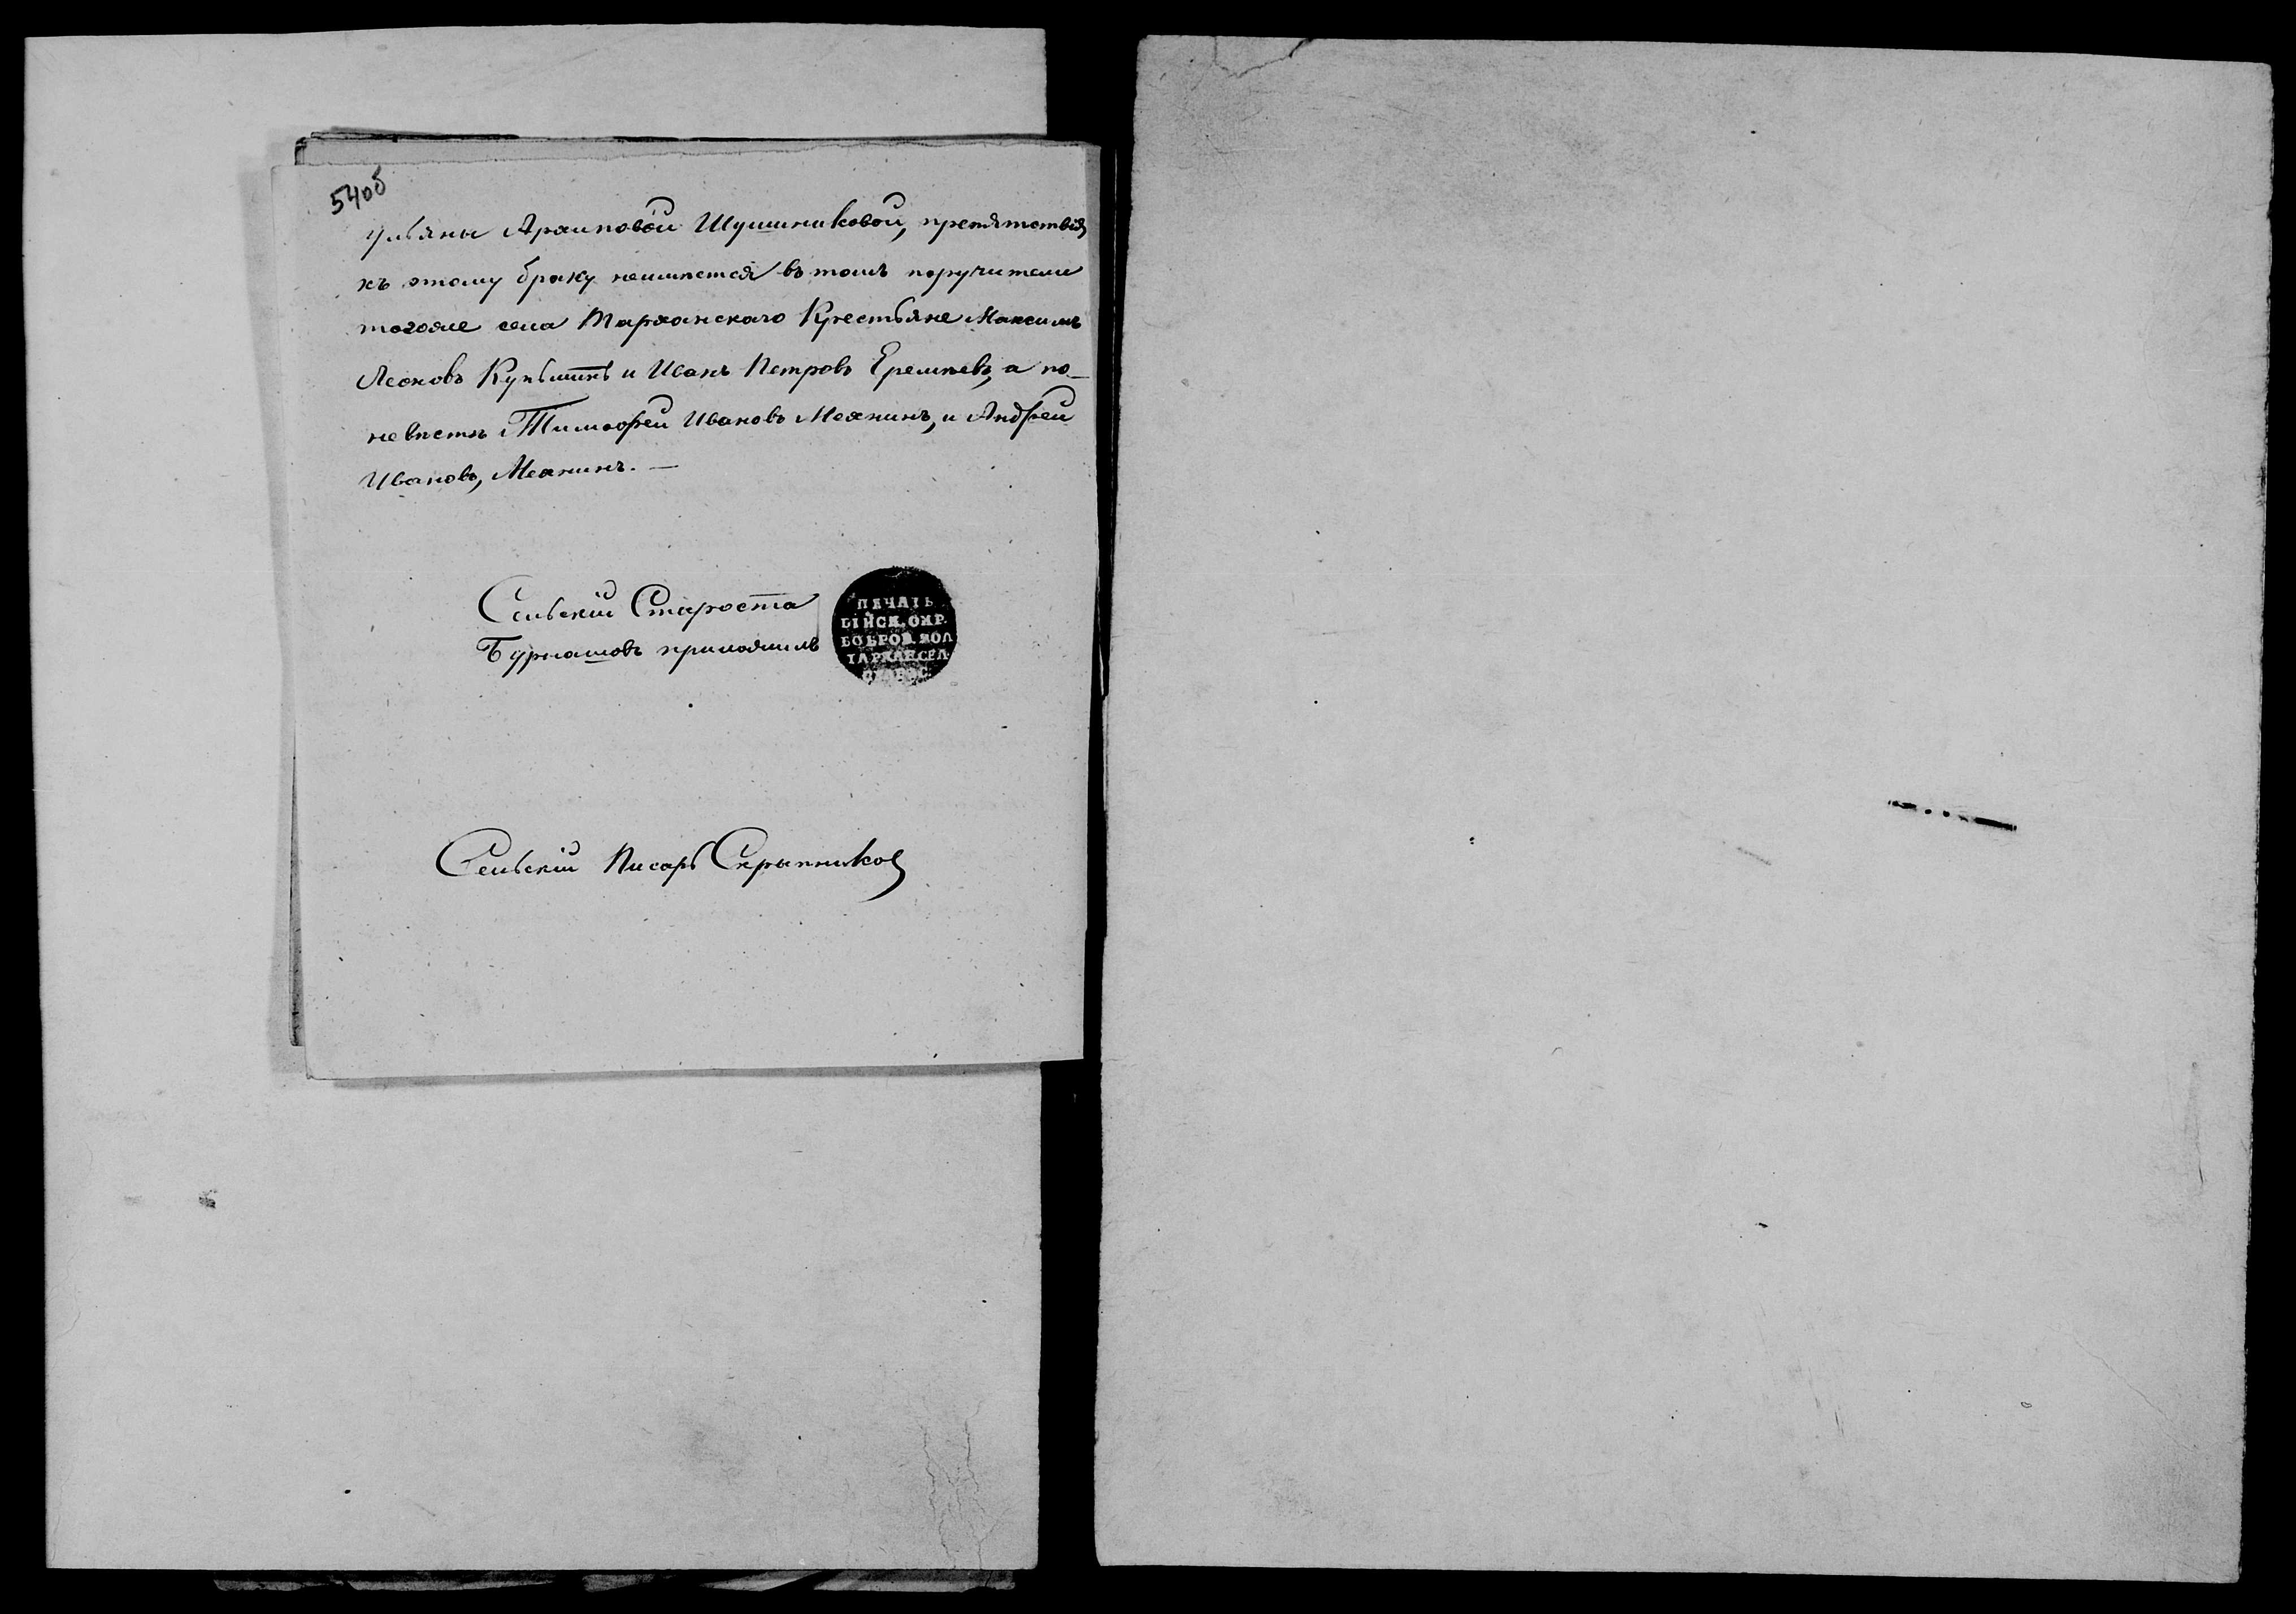 54об
Ульяны Араиповой Шушниковой, препятствія
къ этому браку неимѣется въ томъ поручители
тогоже села Тарханскаго Крестьяне Максимъ
Леоновъ и Иванъ Петровъ Еремѣевъ, а по
невѣстѣ Тимофей Ивановъ Меянинъ, и Андрей
Ивановъ, Меянинъ. —
Сельскій Староста
Бурнашовъ приложилъ
ПЕЧАТЬ
БІЙСК. ОКР.
БОБРОВ. ВОЛ
ТАРХАН СЕЛ.
Сельскій Писарь Скрыпников